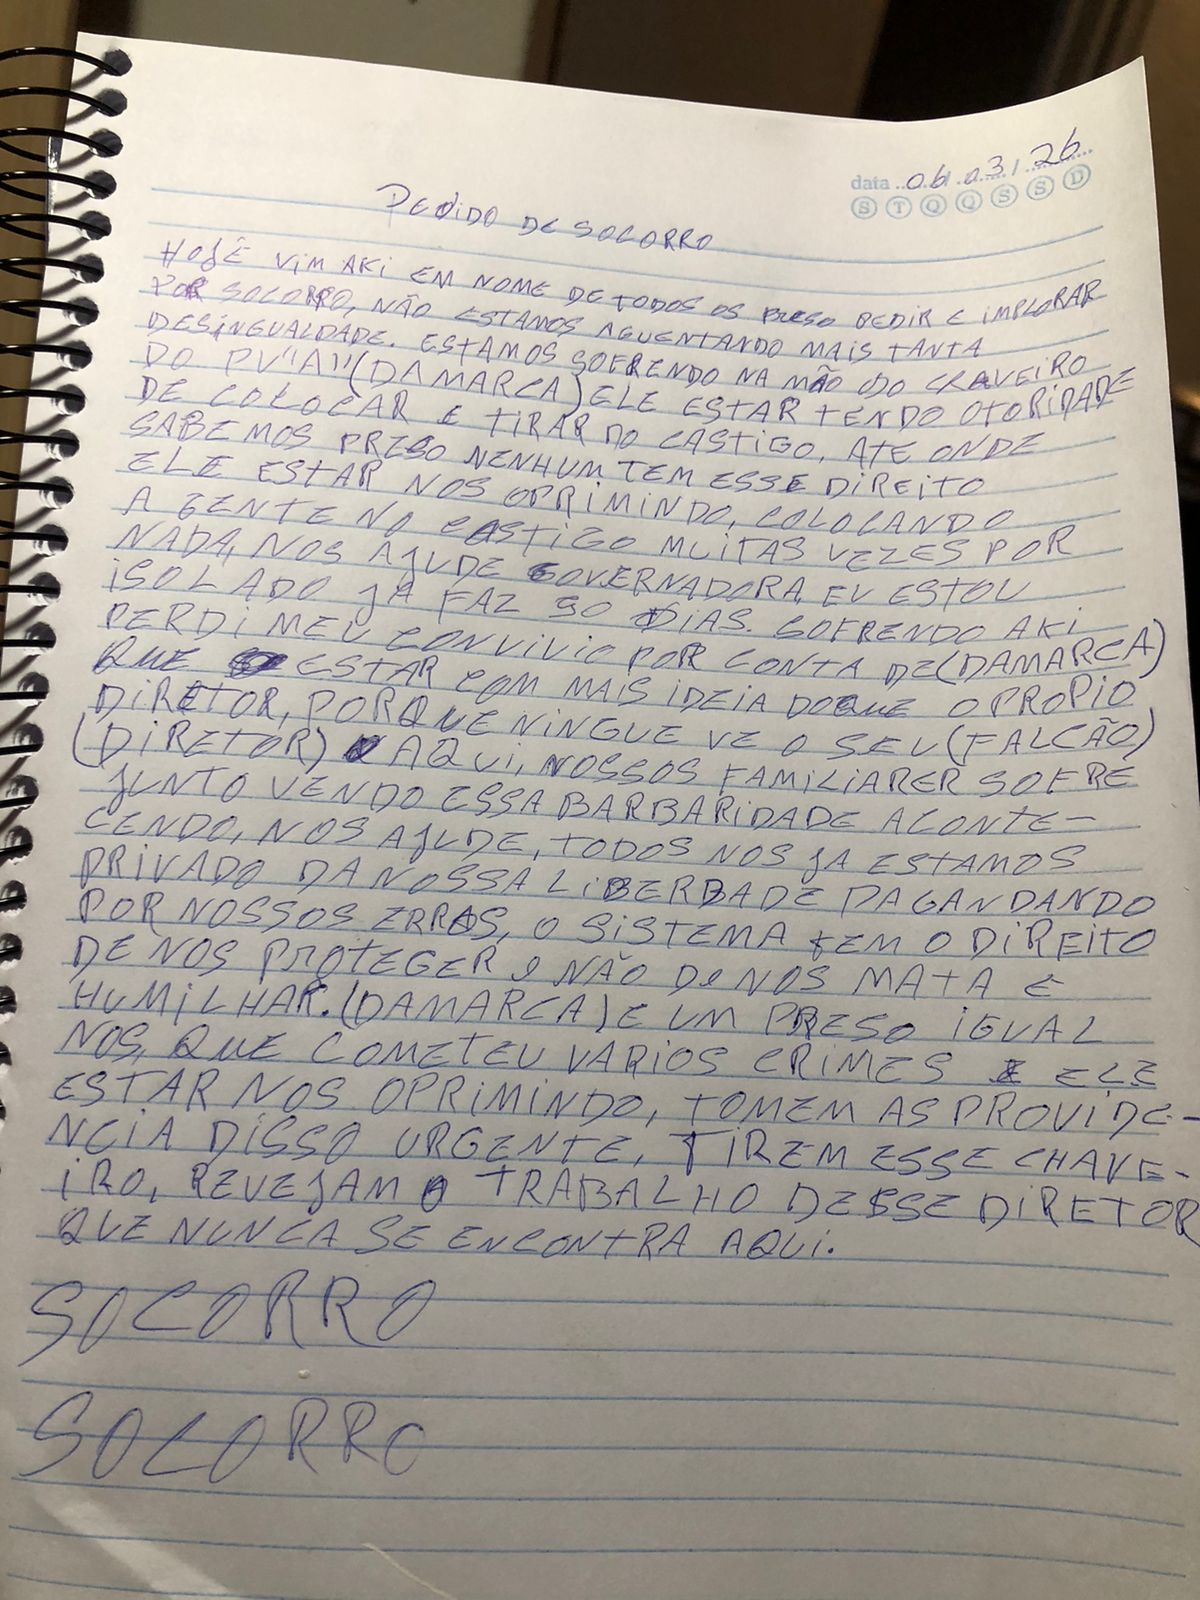 data 06/03/26
S T Q Q S S D
PEDIDO DE SOCORRO
HOJÊ VIM AKI EM NOME DE TODOS OS PRESO PEDIR E IMPLORAR
POR SOCORRO, NÃO ESTAMOS AGUENTANDO MAIS TANTA
DESINGUALDADE. ESTAMOS SOFRENDO NA MÃO DO CHAVEIRO
DO PV"A"(DAMARCA) ELE ESTAR TENDO OTORIDADE
DE COLOCAR E TIRAR DO CASTIGO, ATE ONDE
SABEMOS PRESO NENHUM TEM ESSE DIREITO
ELE ESTAR NOS OPRIMINDO, COLOCANDO
A GENTE NO CASTIGO MUITAS VEZES POR
NADA, NOS AJUDE GOVERNADORA, EU ESTOU
ISOLADO JA FAZ 30 DIAS. SOFRENDO AKI
PERDI MEU CONVIVIO POR CONTA DE (DAMARCA)
QUE ESTAR COM MAIS IDEIA DOQUE O PROPIO
DIRETOR, PORQUE NINGUE VE O SEU (FALCÃO)
(DIRETOR) AQUI, NOSSOS FAMILIARER SOFRE
JUNTO VENDO ESSA BARBARIDADE ACONTE-
CENDO, NOS AJUDE, TODOS NOS JA ESTAMOS
PRIVADO DA NOSSA LIBERBADE PAGANDANDO
POR NOSSOS ERROS, O SISTEMA TEM O DIREITO
DE NOS PROTEGER e NÃO De NOS MATA E
HUMILHAR. (DAMARCA) E UM PRESO IGUAL
NOS, QUE COMETEU VARIOS CRIMES E ELE
ESTAR NOS OPRIMINDO, TOMEM AS PROVIDE-
NCIA DISSO URGENTE, TIREM ESSE CHAVE-
IRO, REVEJAM O TRABALHO DESSE DIRETOR
QUE NUNCA SE ENCONTRA AQUI.
SOCORRO
SOCORRO